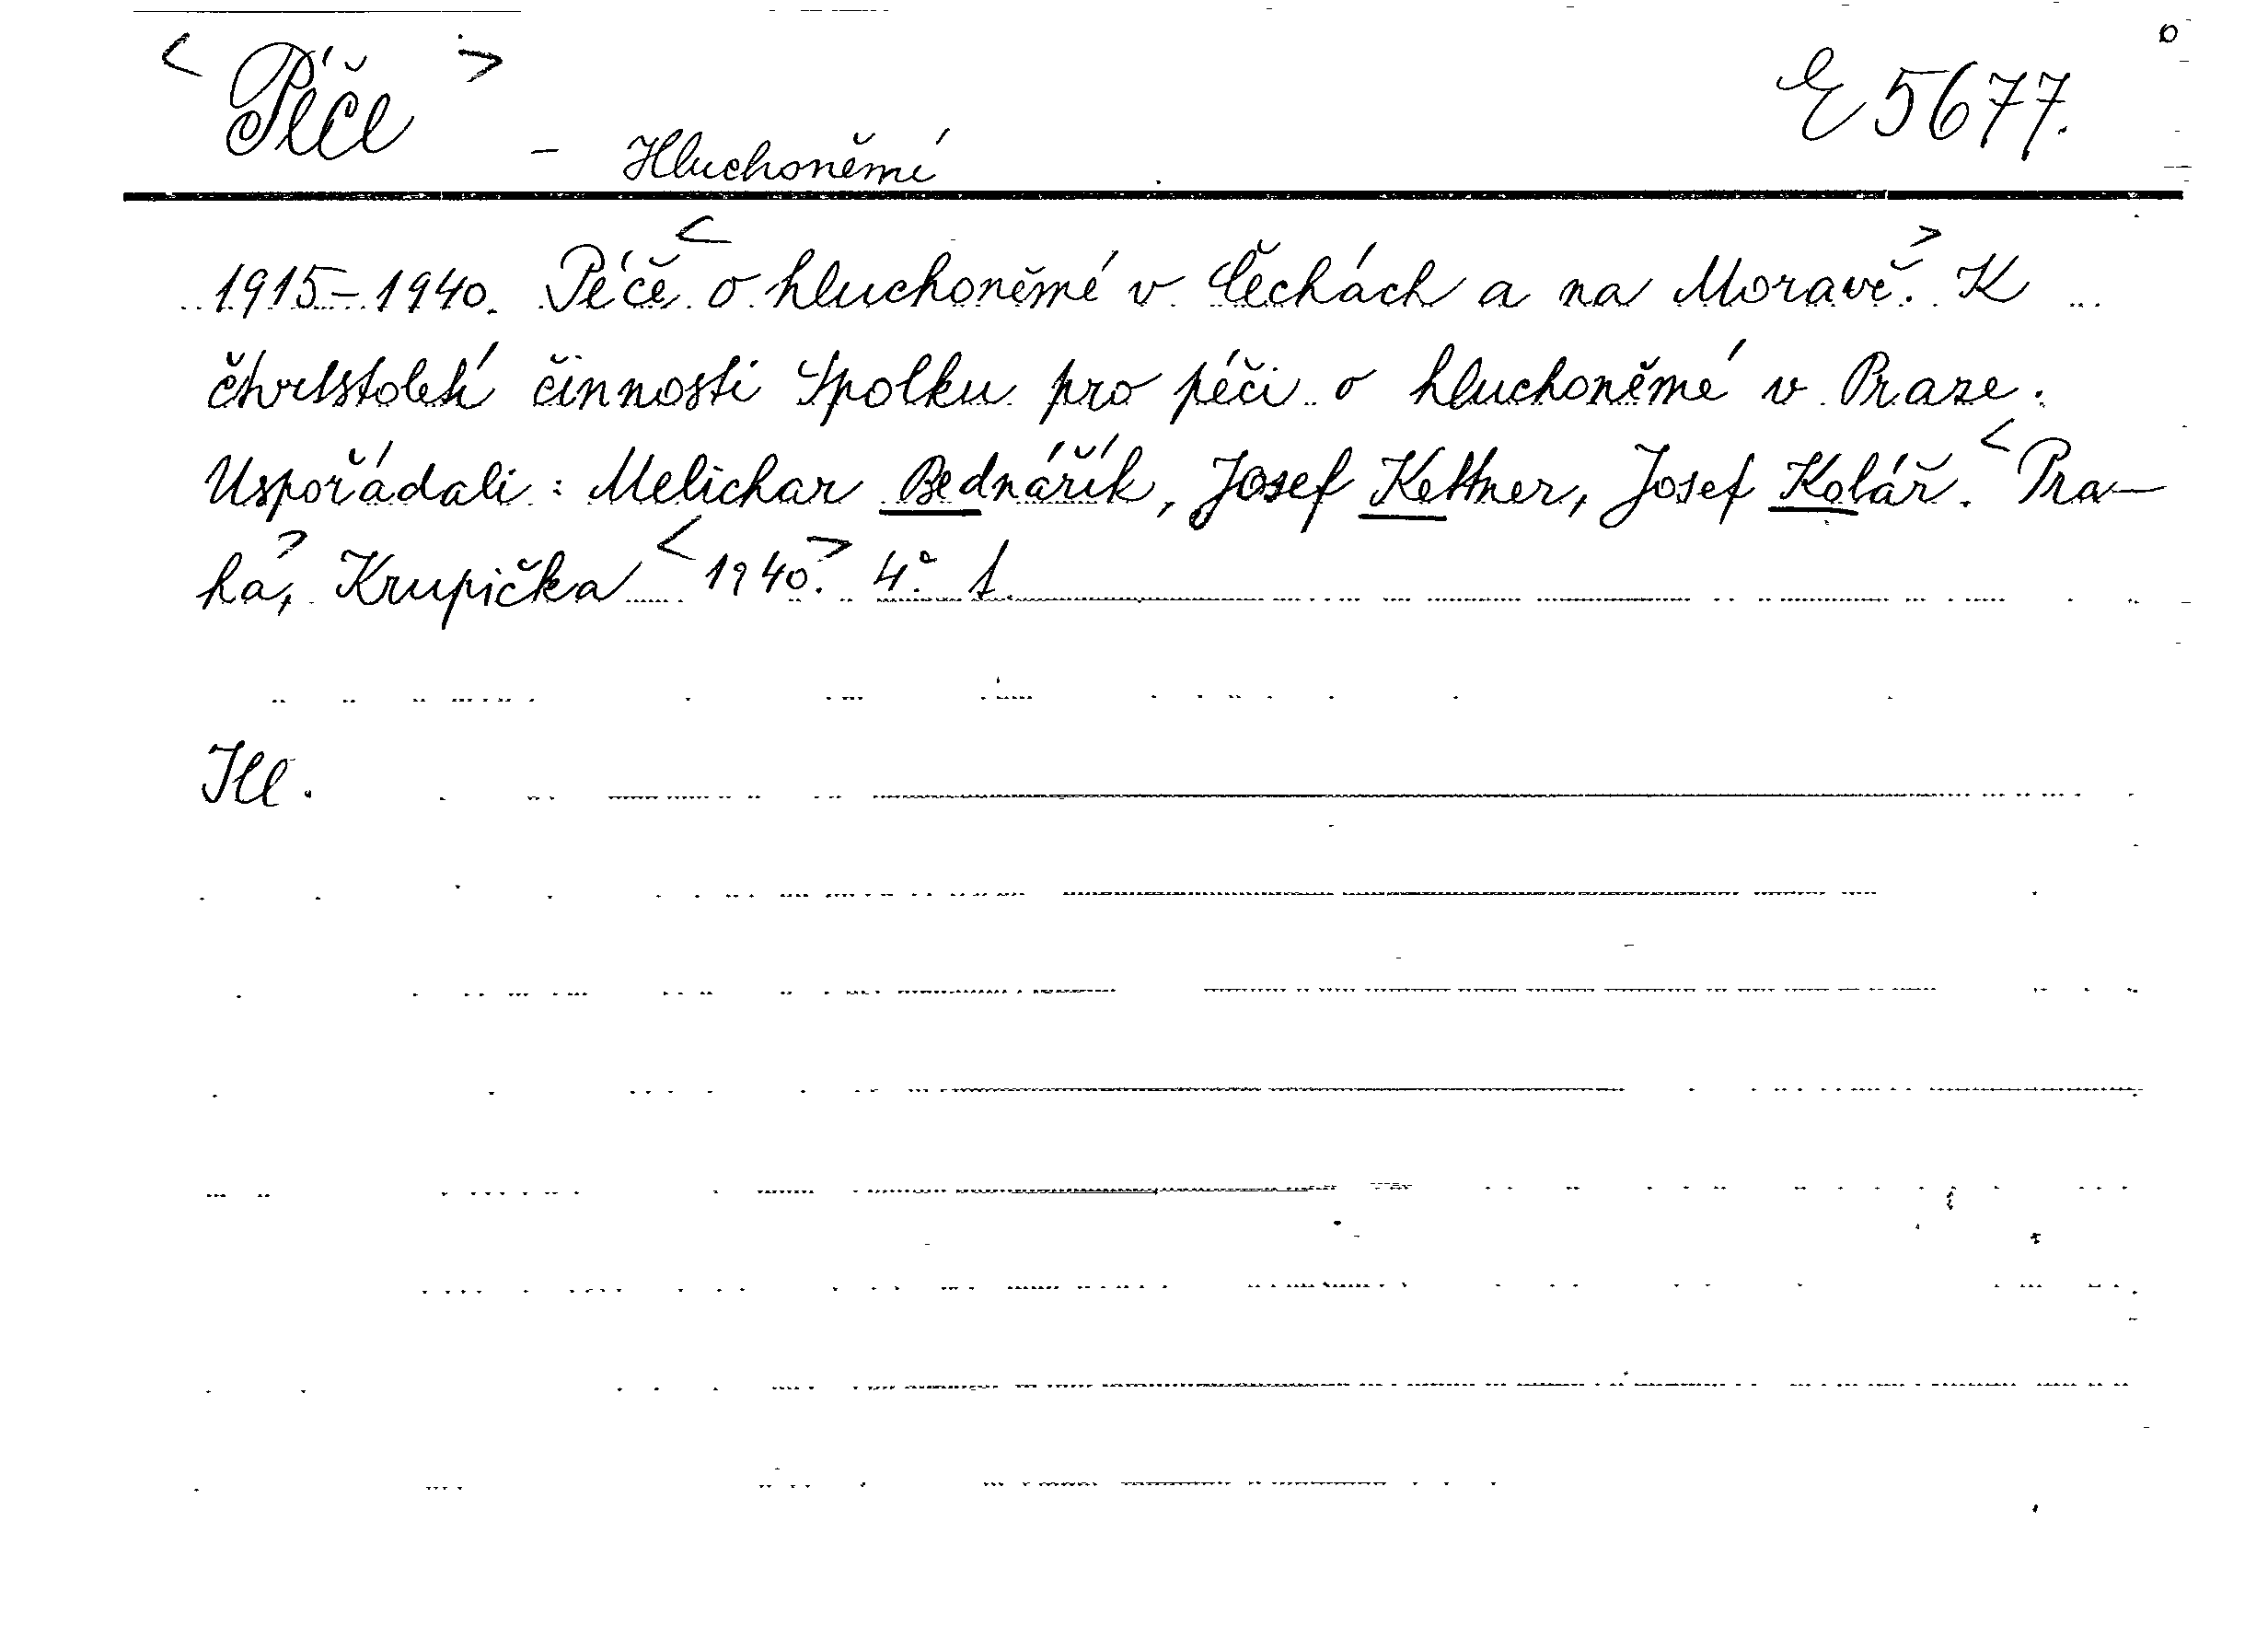 <Péče> - Hluchoněmí E 5677.
1915-1940. Péče < o hluchoněmé v Čechách a na Moravě>. K
čtvrtstoletí činnosti Spolku pro péči o hluchoněmé v Praze.
Uspořádali: Melichar Bednářík, Josef Kettner, Josef Kolář. <Pra-
ha>, Krupička <1940>. 4°.
Ill.